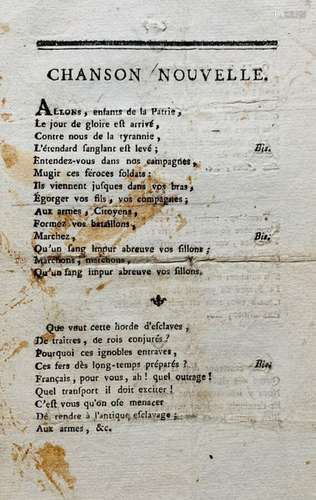 CHANSON NOUVELLE.
ALLONS, enfans de la Patrie,
Le jour de gloire eſt arrivé,
Contre nous de la tyrannie,
L'étendard ſanglant eſt levé; Bis.
Entendez-vous dans nos campagnes,
Mugir ces féroces ſoldats:
Ils viennent juſques dans vos bras,
Égorger vos fils, vos compagnes;
Aux armes, Citoyens,
Formez vos bataillons,
Marchez, Bis.
Qu'un ſang impur abreuve vos ſillons;
Marchons, marchons,
Qu'un ſang impur abreuve vos ſillons.
Que veut cette horde d'eſclaves,
De traîtres, de rois conjurés?
Pourquoi ces ignobles entraves,
Ces fers dès long-temps préparés? Bis.
Français, pour vous, ah! quel outrage!
Quel transport il doit exciter!
C'eſt vous qu'on oſe menacer
De rendre à l'antique eſclavage;
Aux armes, &c.